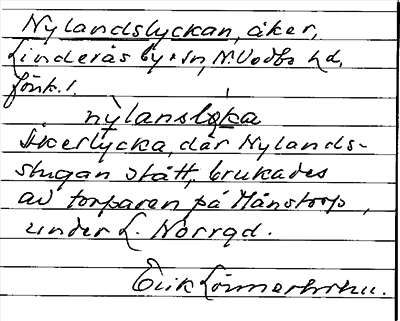 Nylandslyckan, åker,
Linderås by + sn, N. Vedbo hd,
Jönk. l.
nỳlanslo̱ka
Åkerlycka, där Nylands-
stugan stått, brukades
av torparen på Månstorp,
under L. Norrgd.
Erik